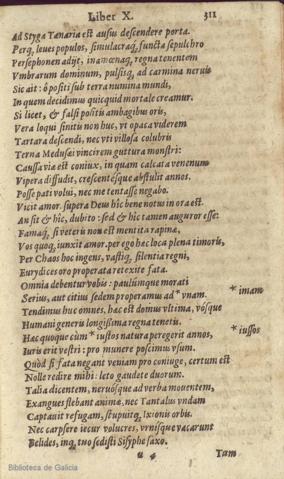 Liber X. 311
Ad Styga Tænaria est ausus descendere porta.
Perq, leues populos, simulacraq, functa sepulchro
Persephonen adijt, inamœnaq, regna tenentem
Vmbrarum dominum, pulsisq, ad carmina neruis
Sic ait: ô positi sub terra numina mundi,
In quem decidimus quicquid mortale creamur.
Si licet, & falsi positis ambagibus oris,
Vera loqui sinitis non huc, vt opaca viderem
Tartara descendi, nec vti villosa colubris
Terna Medusæi vincirem guttura monstri:
Caussa viæ est coniux, in quam calcata venenum
Vipera diffudit, crescentésque abstulit annos.
Posse pati volui, nec me tentasse negabo.
Vicit amor. supera Deus hîc bene notus in ora est.
An sit & hîc, dubito: sed & hîc tamen auguror esse:
Famaq, si veteris non est mentita rapinæ,
Vos quoq, iunxit amor. per ego hæc loca plena timoris,
Per Chaos hoc ingens, vastiq, silentia regni,
Eurydices oro properata retexite fata.
Omnia debentur vobis: paulúmque morati
Serius, aut citius sedem properamus ad * vnam. * imam
Tendimus huc omnes, hæc est domus vltima, vósque
Humani generis longissima regna tenetis.
Hæc quoque cùm * iustos natura peregerit annos, * iussos
Iuris erit vestri: pro munere poscimus vsum.
Quòd si fata negant veniam pro coniuge, certum est
Nolle redire mihi: leto gaudete duorum.
Talia dicentem, neruósque ad verba mouentem,
Exangues flebant animæ, nec Tantalus vndam
Captauit refugam, stupuitq, Ixionis orbis.
Nec carpsere iecur volucres, vrnisque vacarunt
Belides, inq, tuo sedisti Sisyphe saxo.
u 4 Tam
Biblioteca de Galicia